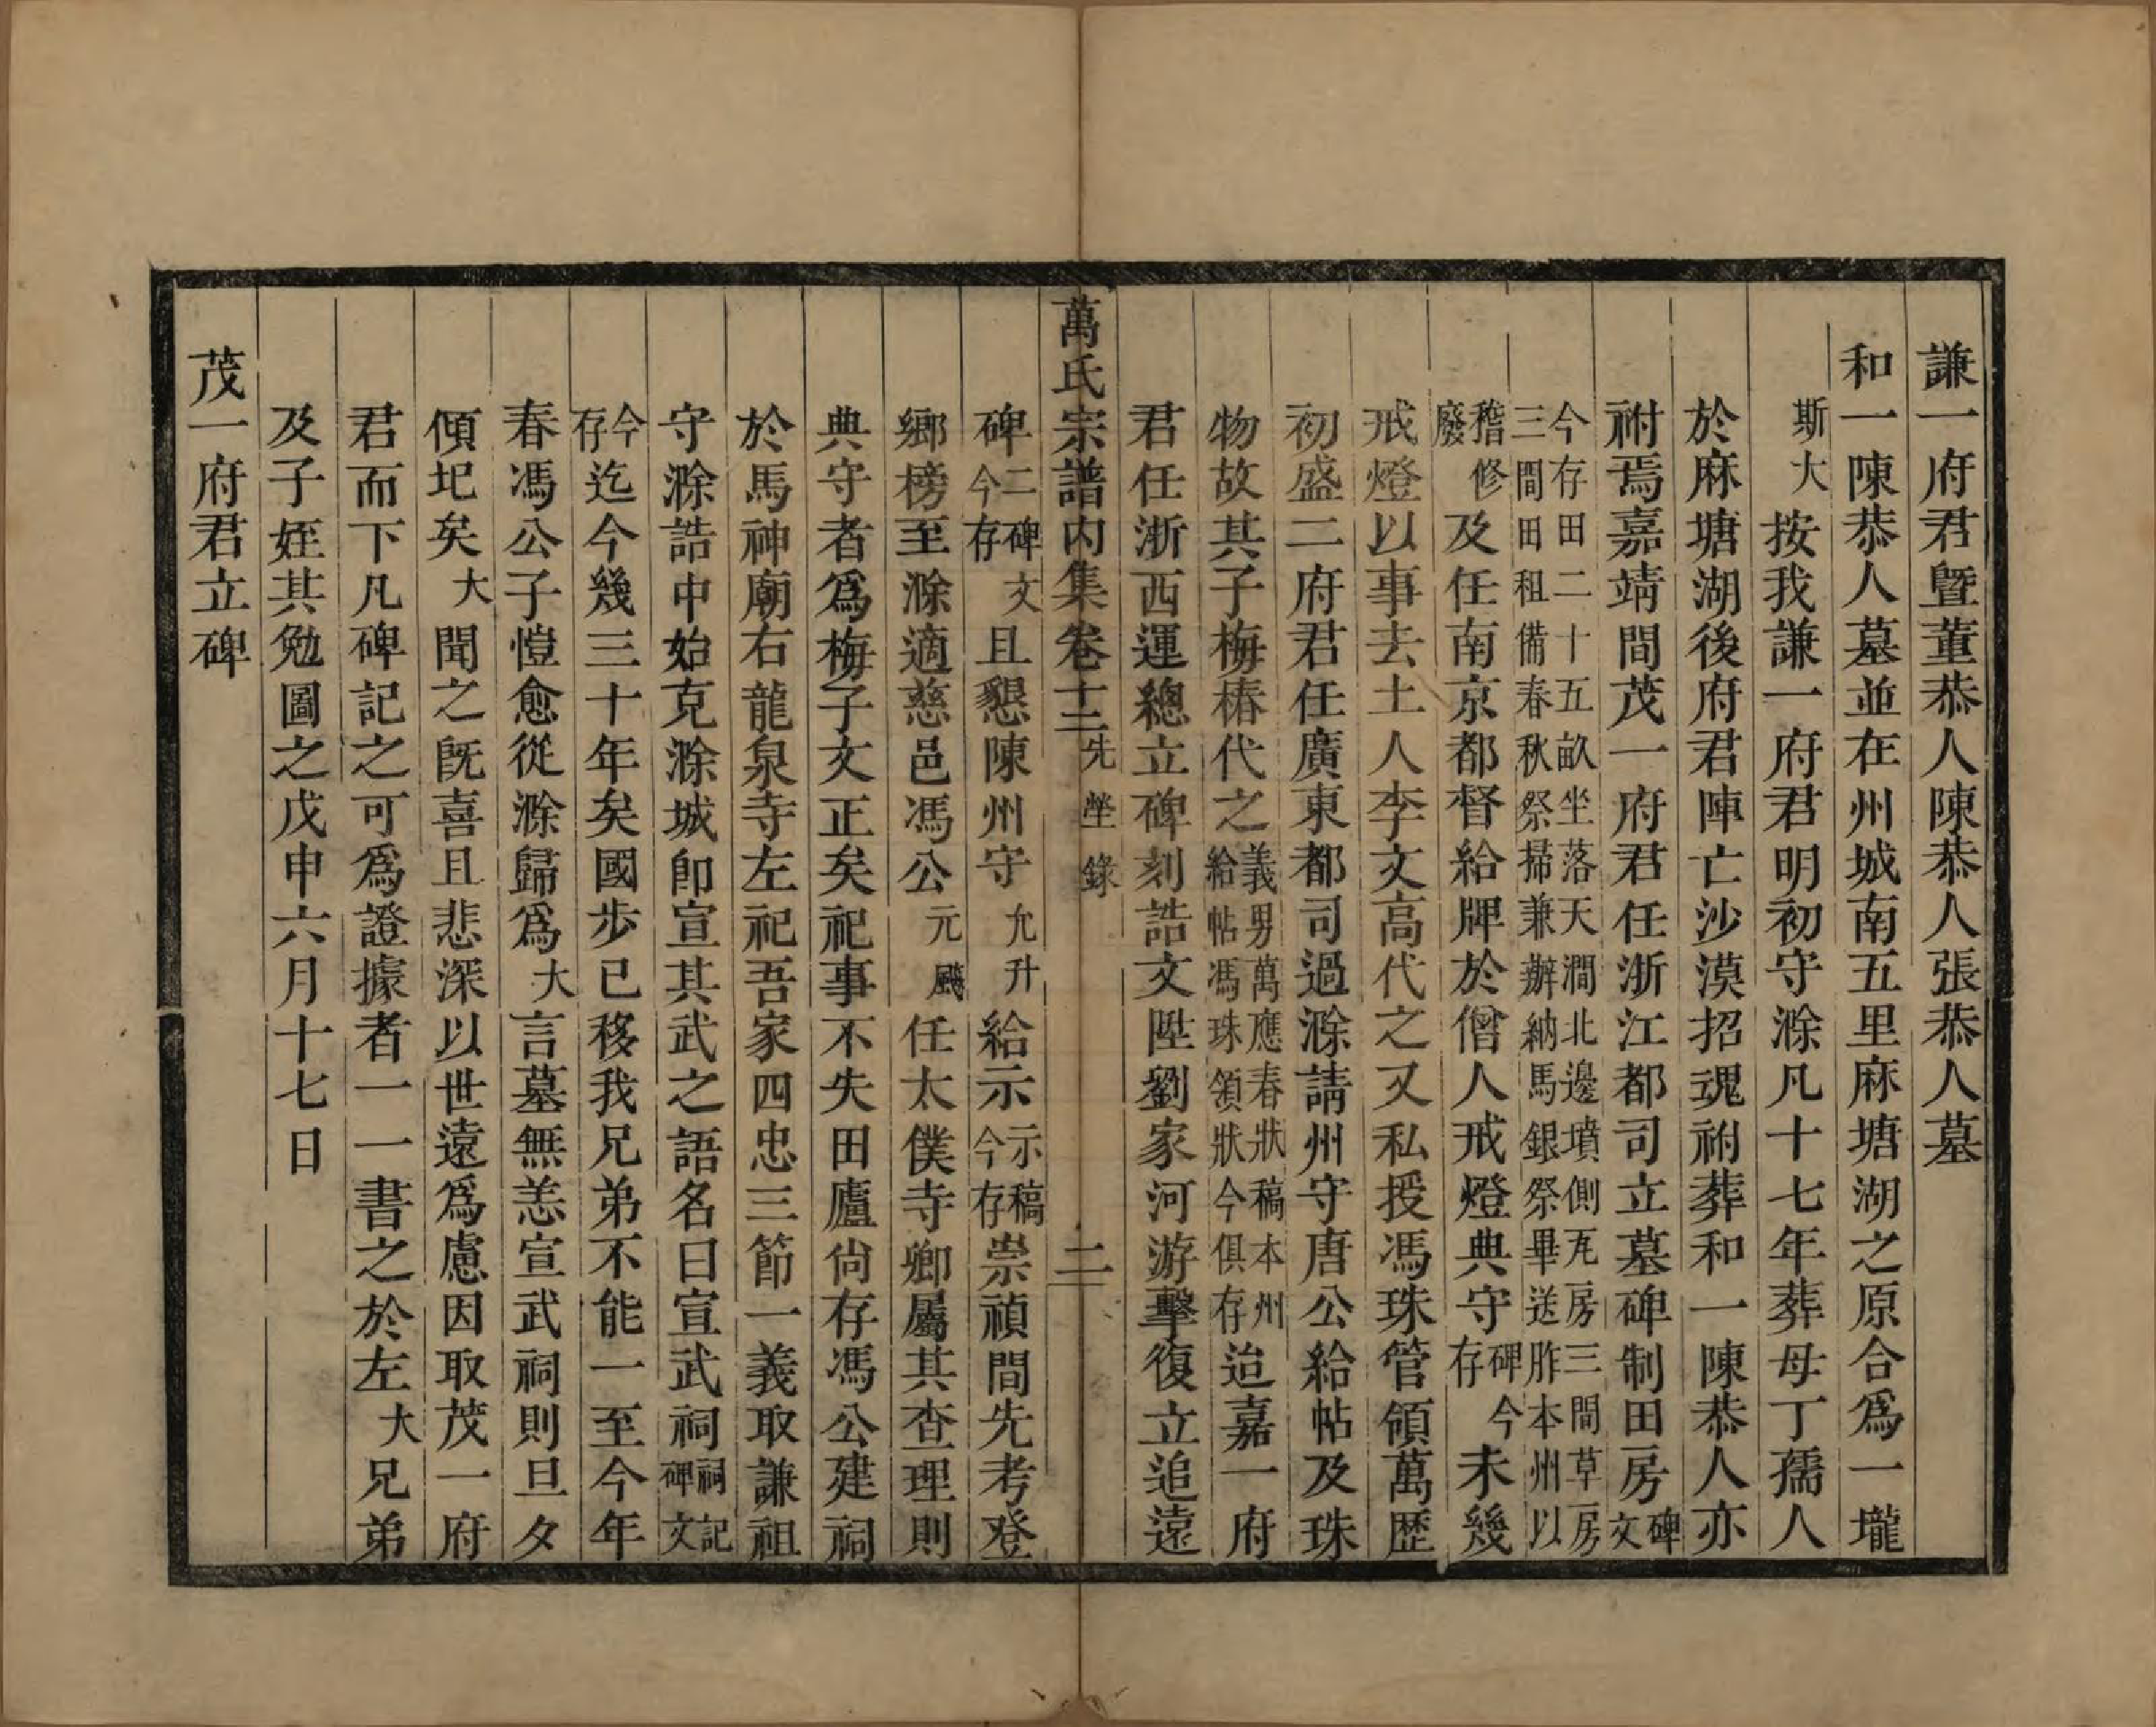 謙一府君曁董恭人陳恭人張恭人墓
和一陳恭人墓並在州城南五里麻塘湖之原合爲一壠
斯大按我謙一府君明初守滁凡十七年葬母丁孺人
於麻塘湖後府君陣亡沙漠招魂祔葬和一陳恭人亦
祔焉嘉靖間茂一府君任浙江都司立墓碑制田房碑文
今存田二十五畝坐落天澗北邊墳側瓦房三間草房
三間田租備春秋祭掃兼辦納馬銀祭畢送胙本州以
稽修廢及任南京都督給牌於僧人戒燈典守碑今存未幾
戒燈以事去土人李文高代之又私授馮珠管領萬歷
初盛二府君任廣東都司過滁請州守唐公給帖及珠
物故其子梅椿代之義男萬應春狀稿本州給帖馮珠領狀今俱存迨嘉一府
君任浙西運總立碑刻誥文陞劉家河游擊復立追遠
萬氏宗譜內集卷十三 先塋錄 二
碑二碑文今存且懇陳州守允升給示示稿今存崇禎間先考登
鄉榜至滁適慈邑馮公元颺任太僕寺卿屬其查理則
典守者爲梅子文正矣祀事不失田廬尙存馮公建祠
於馬神廟右龍泉寺左祀吾家四忠三節一義取謙祖
守滁誥中始克滁城卽宣其武之語名曰宣武祠祠記碑文
今存迄今幾三十年矣國步已移我兄弟不能一至今年
春馮公子愷愈從滁歸爲大言墓無恙宣武祠則旦夕
傾圮矣大聞之旣喜且悲深以世遠爲慮因取茂一府
君而下凡碑記之可爲證據者一一書之於左大兄弟
及子姪其勉圖之戊申六月十七日
茂一府君立碑